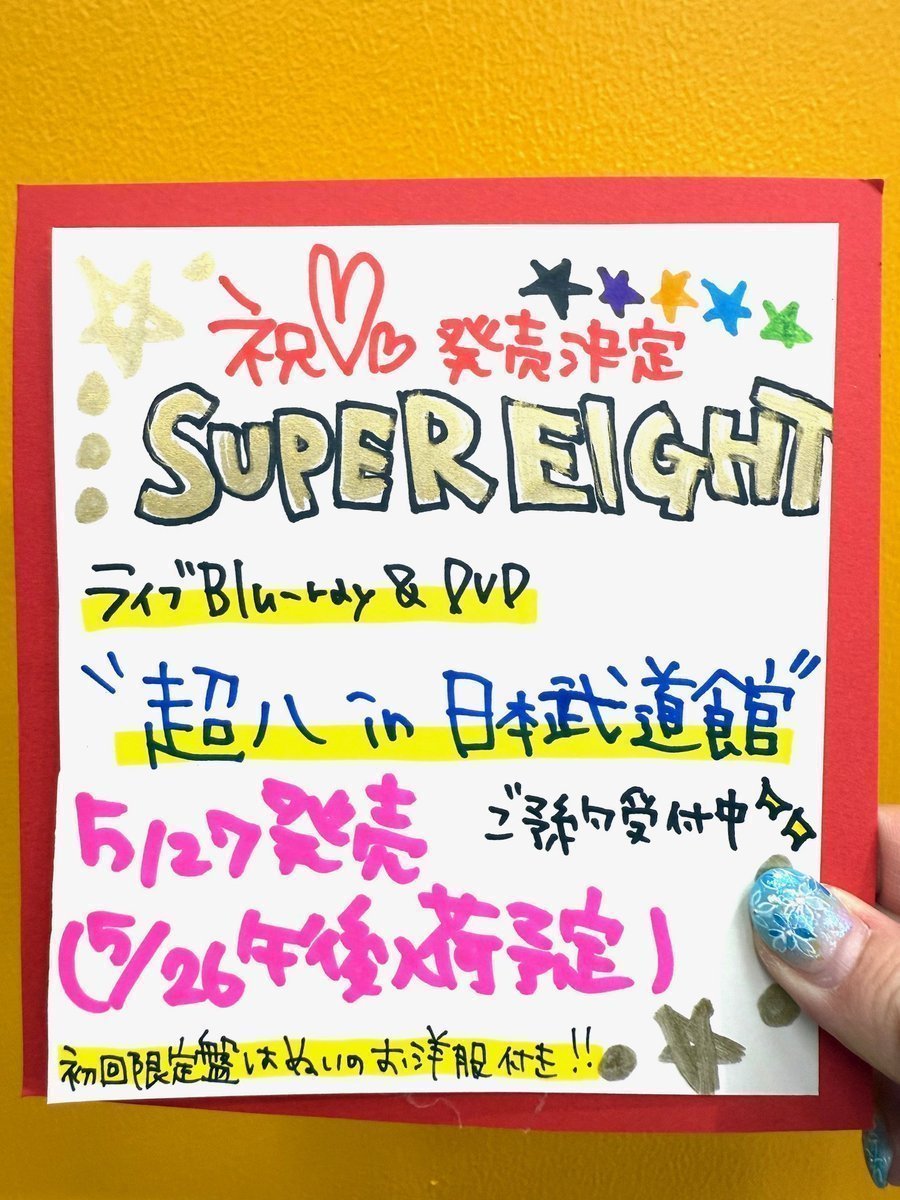 祝♡♡発売決定
SUPER EIGHT
ライブBlu-ray & DVD
"超八 in 日本武道館"
5/27発売
ご予約受付中
(5/26午後入荷予定)
初回限定盤はぬいのお洋服付き!!